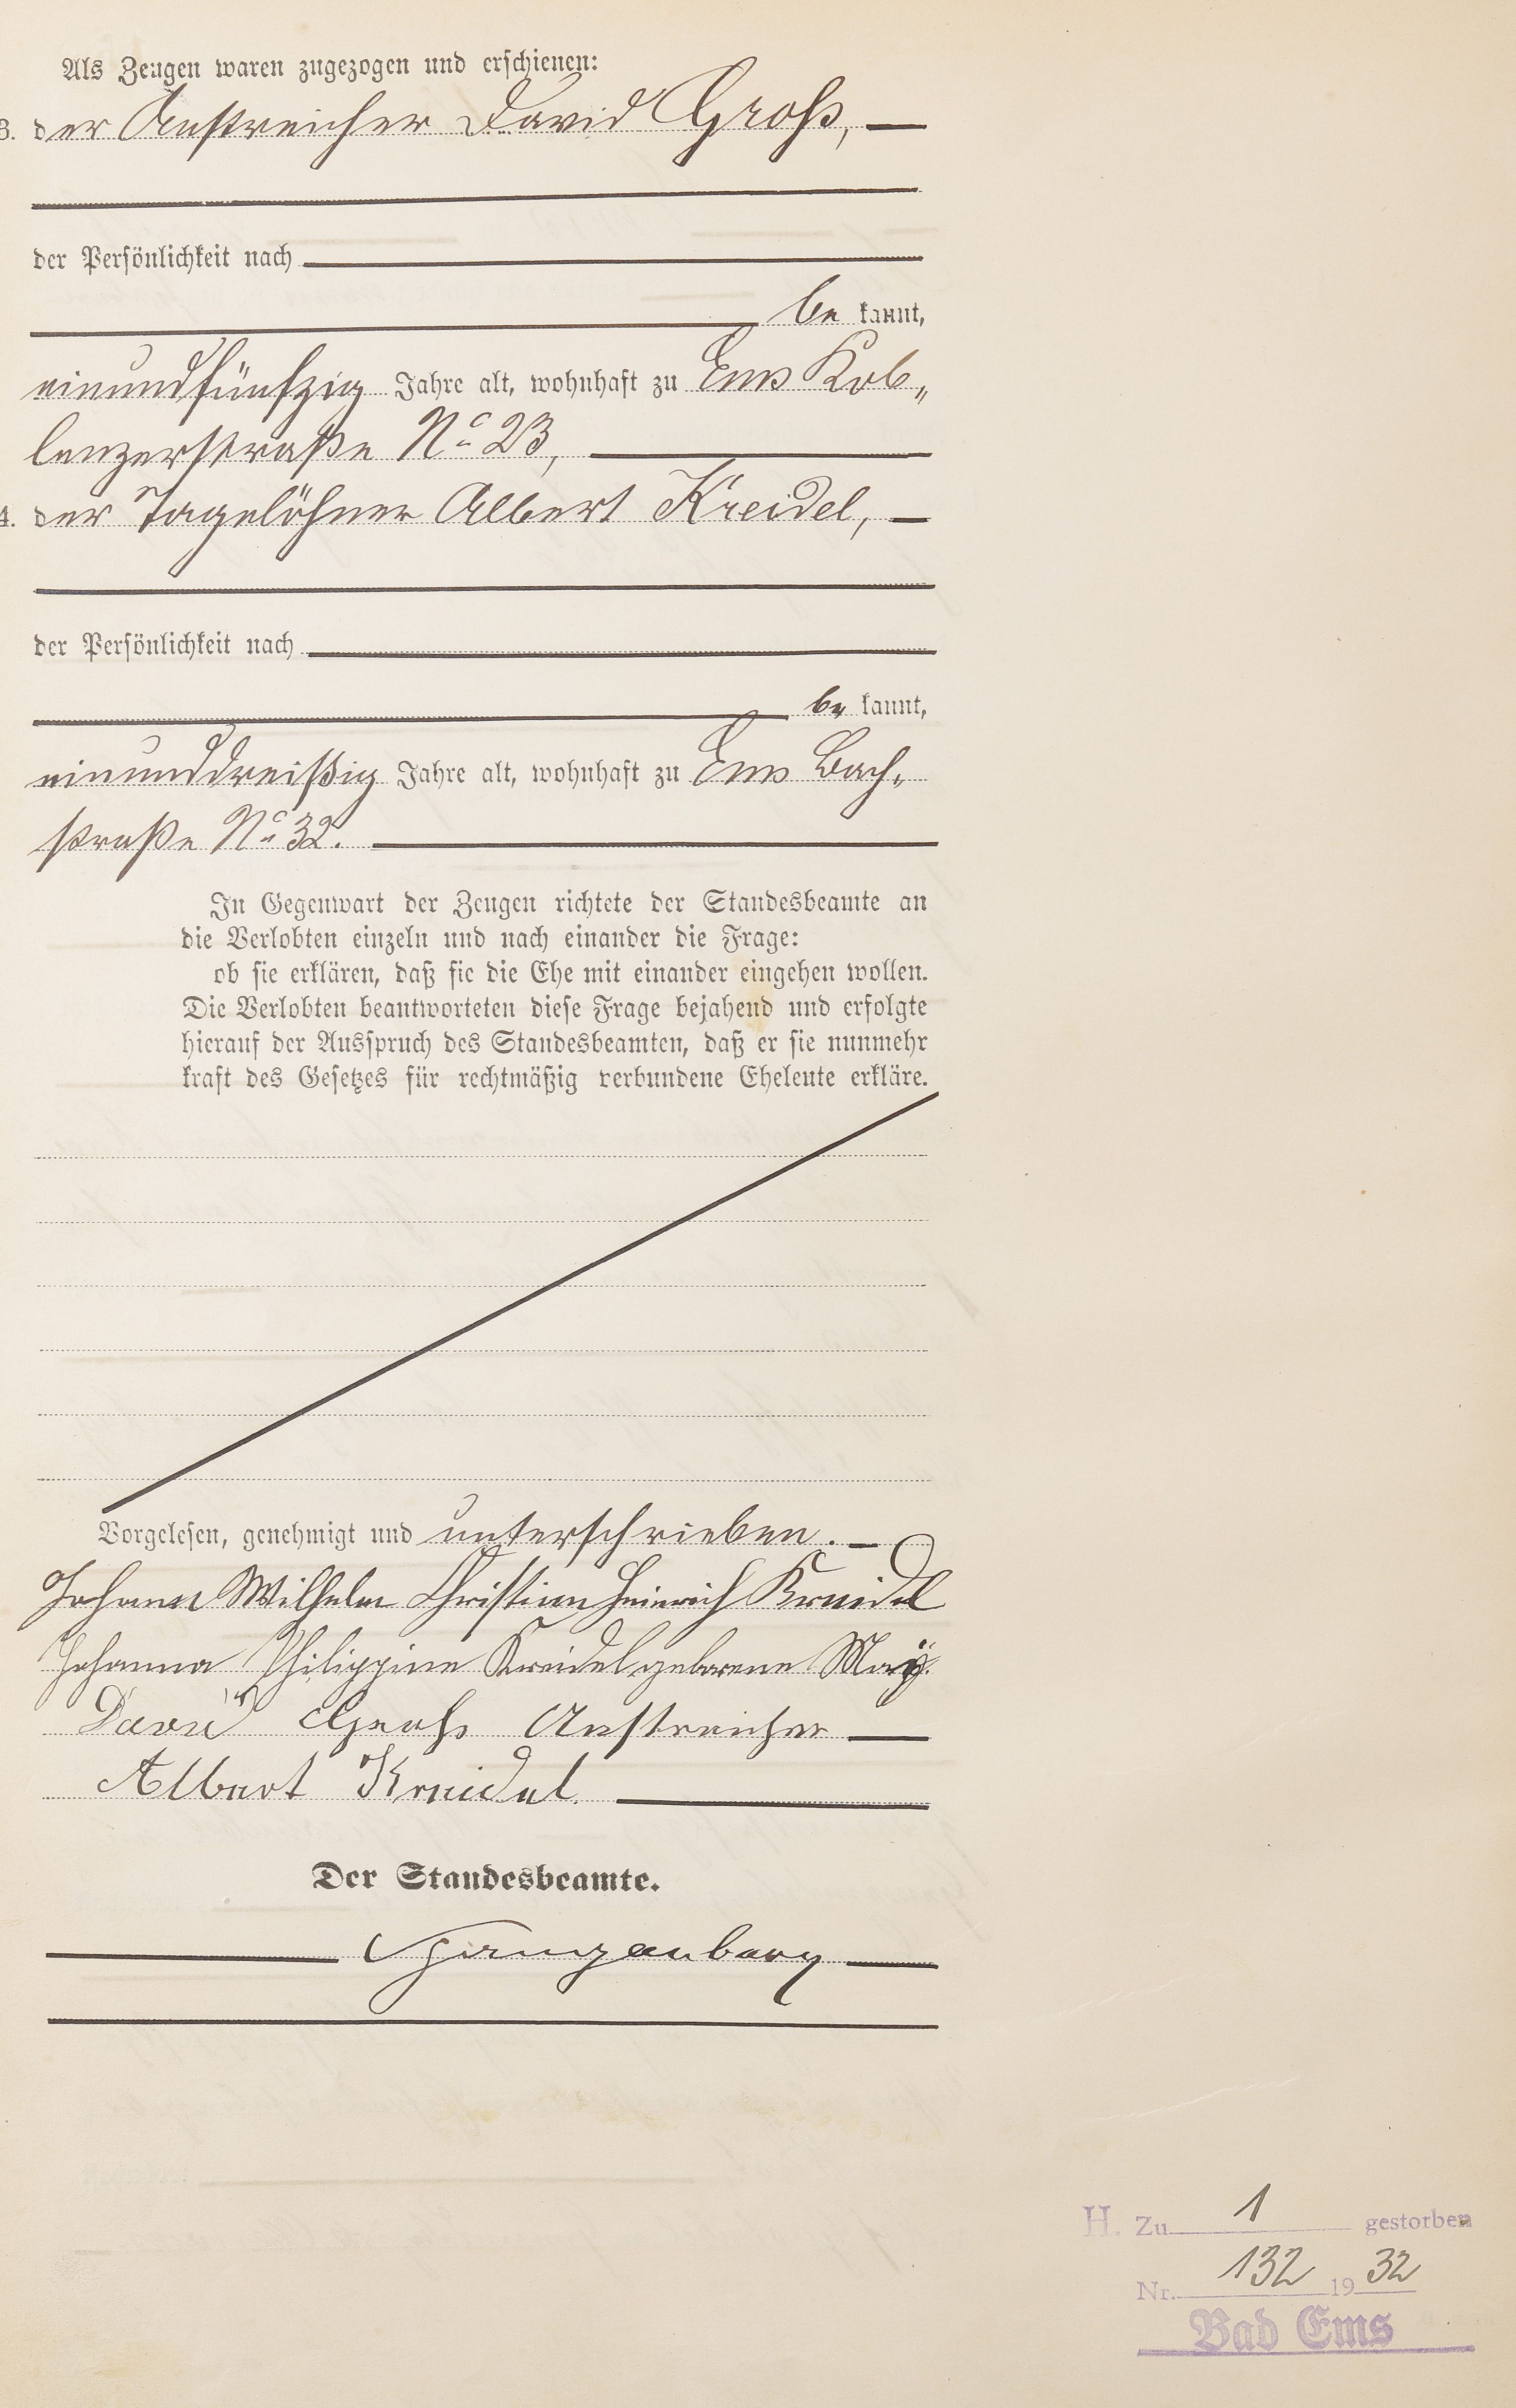 Als Zeugen waren zugezogen und erschienen:
3. der Anstreicher David Groß,
der Persönlichkeit nach
be kannt,
einundfünfzig Jahre alt, wohnhaft zu Ems Kob„
lenzerstraße No 23,
4. der Tagelöhner Albert Kreidel,
der Persönlichkeit nach
be kannt,
einunddreißig Jahre alt, wohnhaft zu Ems Bach„
straße No 32.
In Gegenwart der Zeugen richtete der Standesbeamte an
die Verlobten einzeln und nach einander die Frage:
ob sie erklären, daß sie die Ehe mit einander eingehen wollen.
Die Verlobten beantworteten diese Frage bejahend und erfolgte
hierauf der Ausspruch des Standesbeamten, daß er sie nunmehr
kraft des Gesetzes für rechtmäßig verbundene Eheleute erkläre.
Vorgelesen, genehmigt und unterschrieben.
Johann Wilhelm Christian Heinrich Kreidel
Johanna Philippine Kreidel geborene Maÿ.
David Groß Anstreicher
Albert Kreidel
Der Standesbeamte.
Spangenberg
H. Zu 1 gestorben
Nr. 132 1932
Bad Ems